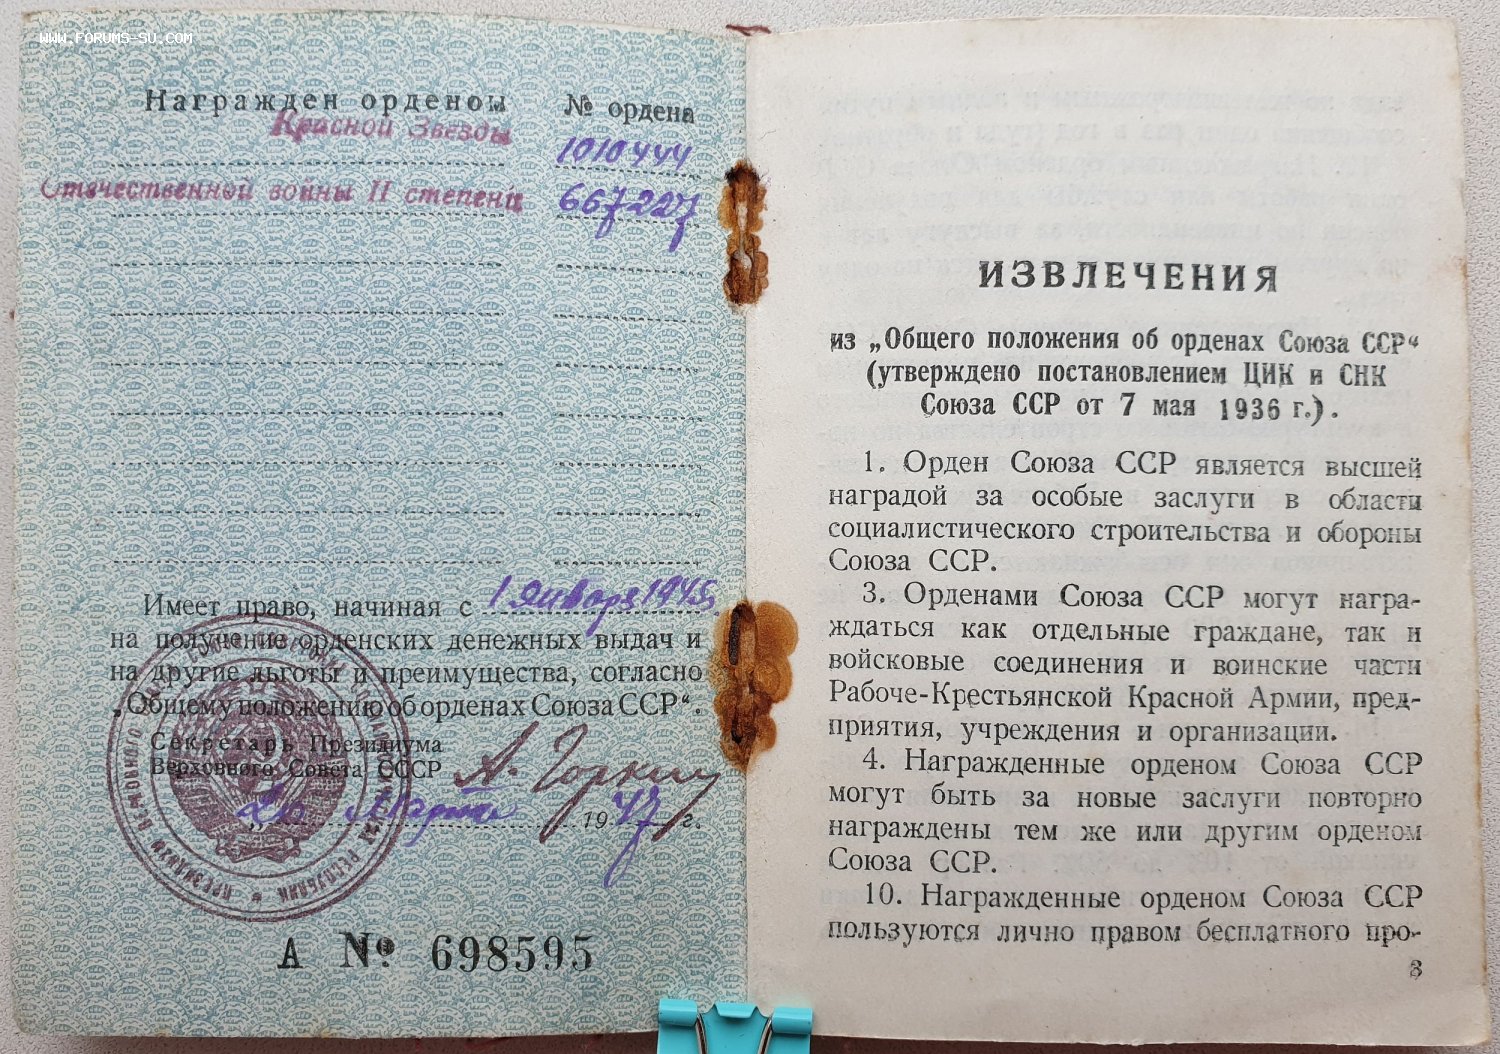 www.forums-su.com
Награжден орденом № ордена
Красной Звезды 1010444
Отечественной войны II степени 667227
Имеет право, начиная с 1 января 1945
на получение орденских денежных выдач и
на другие льготы и преимущества, согласно
„Общему положению об орденах Союза ССР“.
Секретарь Президиума
Верховного Совета СССР А. Горкин
Марта 1947 г.
А № 698595
ИЗВЛЕЧЕНИЯ
из „Общего положения об орденах Союза ССР“
(утверждено постановлением ЦИК и СНК
Союза ССР от 7 мая 1936 г.).
1. Орден Союза ССР является высшей
наградой за особые заслуги в области
социалистического строительства и обороны
Союза ССР.
3. Орденами Союза ССР могут награ-
ждаться как отдельные граждане, так и
войсковые соединения и воинские части
Рабоче-Крестьянской Красной Армии, пред-
приятия, учреждения и организации.
4. Награжденные орденом Союза ССР
могут быть за новые заслуги повторно
награждены тем же или другим орденом
Союза ССР.
10. Награжденные орденом Союза ССР
пользуются лично правом бесплатного про-
3